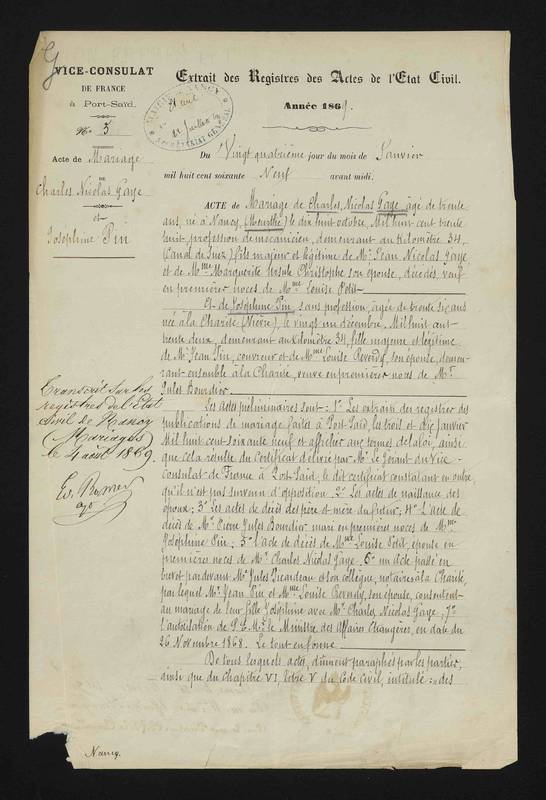 VICE-CONSULAT
DE FRANCE
à Port-Saïd.
No 3
Acte de Mariage
DE
Charles Nicolas Gaye
et
Josephine Pin
Extrait des Registres des Actes de l'Etat Civil.
Année 1869.
Du Vingt quatrième jour du mois de Janvier
mil huit cent soixante Neuf avant midi.
ACTE de Mariage de Charles Nicolas Gaye, âgé de trente
ans, né à Nancy, (Meurthe) le dix huit octobre, Mil huit cent trente
huit, profession de mécanicien, demeurant au Kilomètre 34,
(Canal de Suez) fils majeur et légitime de Mr Jean Nicolas Gaye
et de Mme Marguerite Ursule Christophe son épouse, décédés, veuf
en premières noces de Mme Louise Petit.
Et de Joséphine Pin, sans profession, âgée de trente six ans
née à la Charité (Nièvre), le vingt un décembre, Mil huit cent
trente deux, demeurant au Kilomètre 34, fille majeure et légitime
de Mr Jean Pin, couvreur et de Mme Louise Reverdy, son épouse, demeu-
rant ensemble à la Charité, veuve en premières noces de Mr
Jules Bourdier
Les actes préliminaires sont: 1º Les extraits des registres des
publications de mariage faites à Port Saïd, les trois et dix Janvier
Mil huit cent soixante neuf et affichés aux termes de la loi, ainsi
que cela résulte du Certificat délivré par Mr Le Gérant du Vice-
Consulat de France à Port-Saïd, le dit certificat constatant en outre
qu'il n'est pas survenu d'opposition. 2º Les actes de naissance des
époux; 3º Les actes de décès des père et mère du futur; 4º L'acte de
décès de Mr Pierre Jules Bourdier mari en premières noces de Mme
Joséphine Pin; 5º l'acte de décès de Mme Louise Petit, épouse en
premières noces de Mr Charles Nicolas Gaye. 6º un acte passé en
brevet pardevant Me Jules Picardeau et son collègue, notaires à la Charité,
par lequel Mr Jean Pin et Mme Louise Reverdy, son épouse, consentent
au mariage de leur fille Joséphine avec Mr Charles Nicolas Gaye; 7º
l'autorisation de S. E. Mr le Ministre des Affaires Etrangères, en date du
26 Novembre 1868. Le tout en forme
De tous lesquels actes, dûment paraphés par les parties,
ainsi que du Chapitre VI, titre V du Code civil, intitulé: „des
Transcrit sur les
registres de l'Etat
Civil de Nancy
(Mariages)
le 4 août 1869.
Nancy.